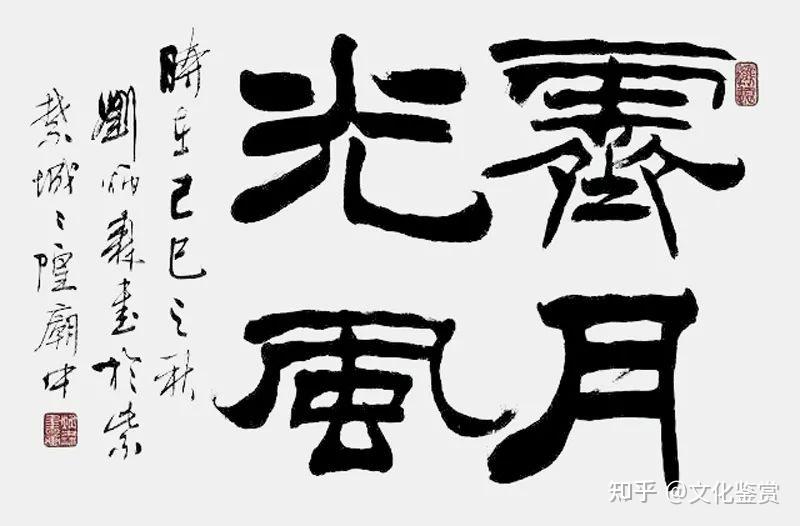 霽月
光風
時在己巳之秋
劉炳森書於紫
禁城〻隍廟中
知乎 @文化鉴赏